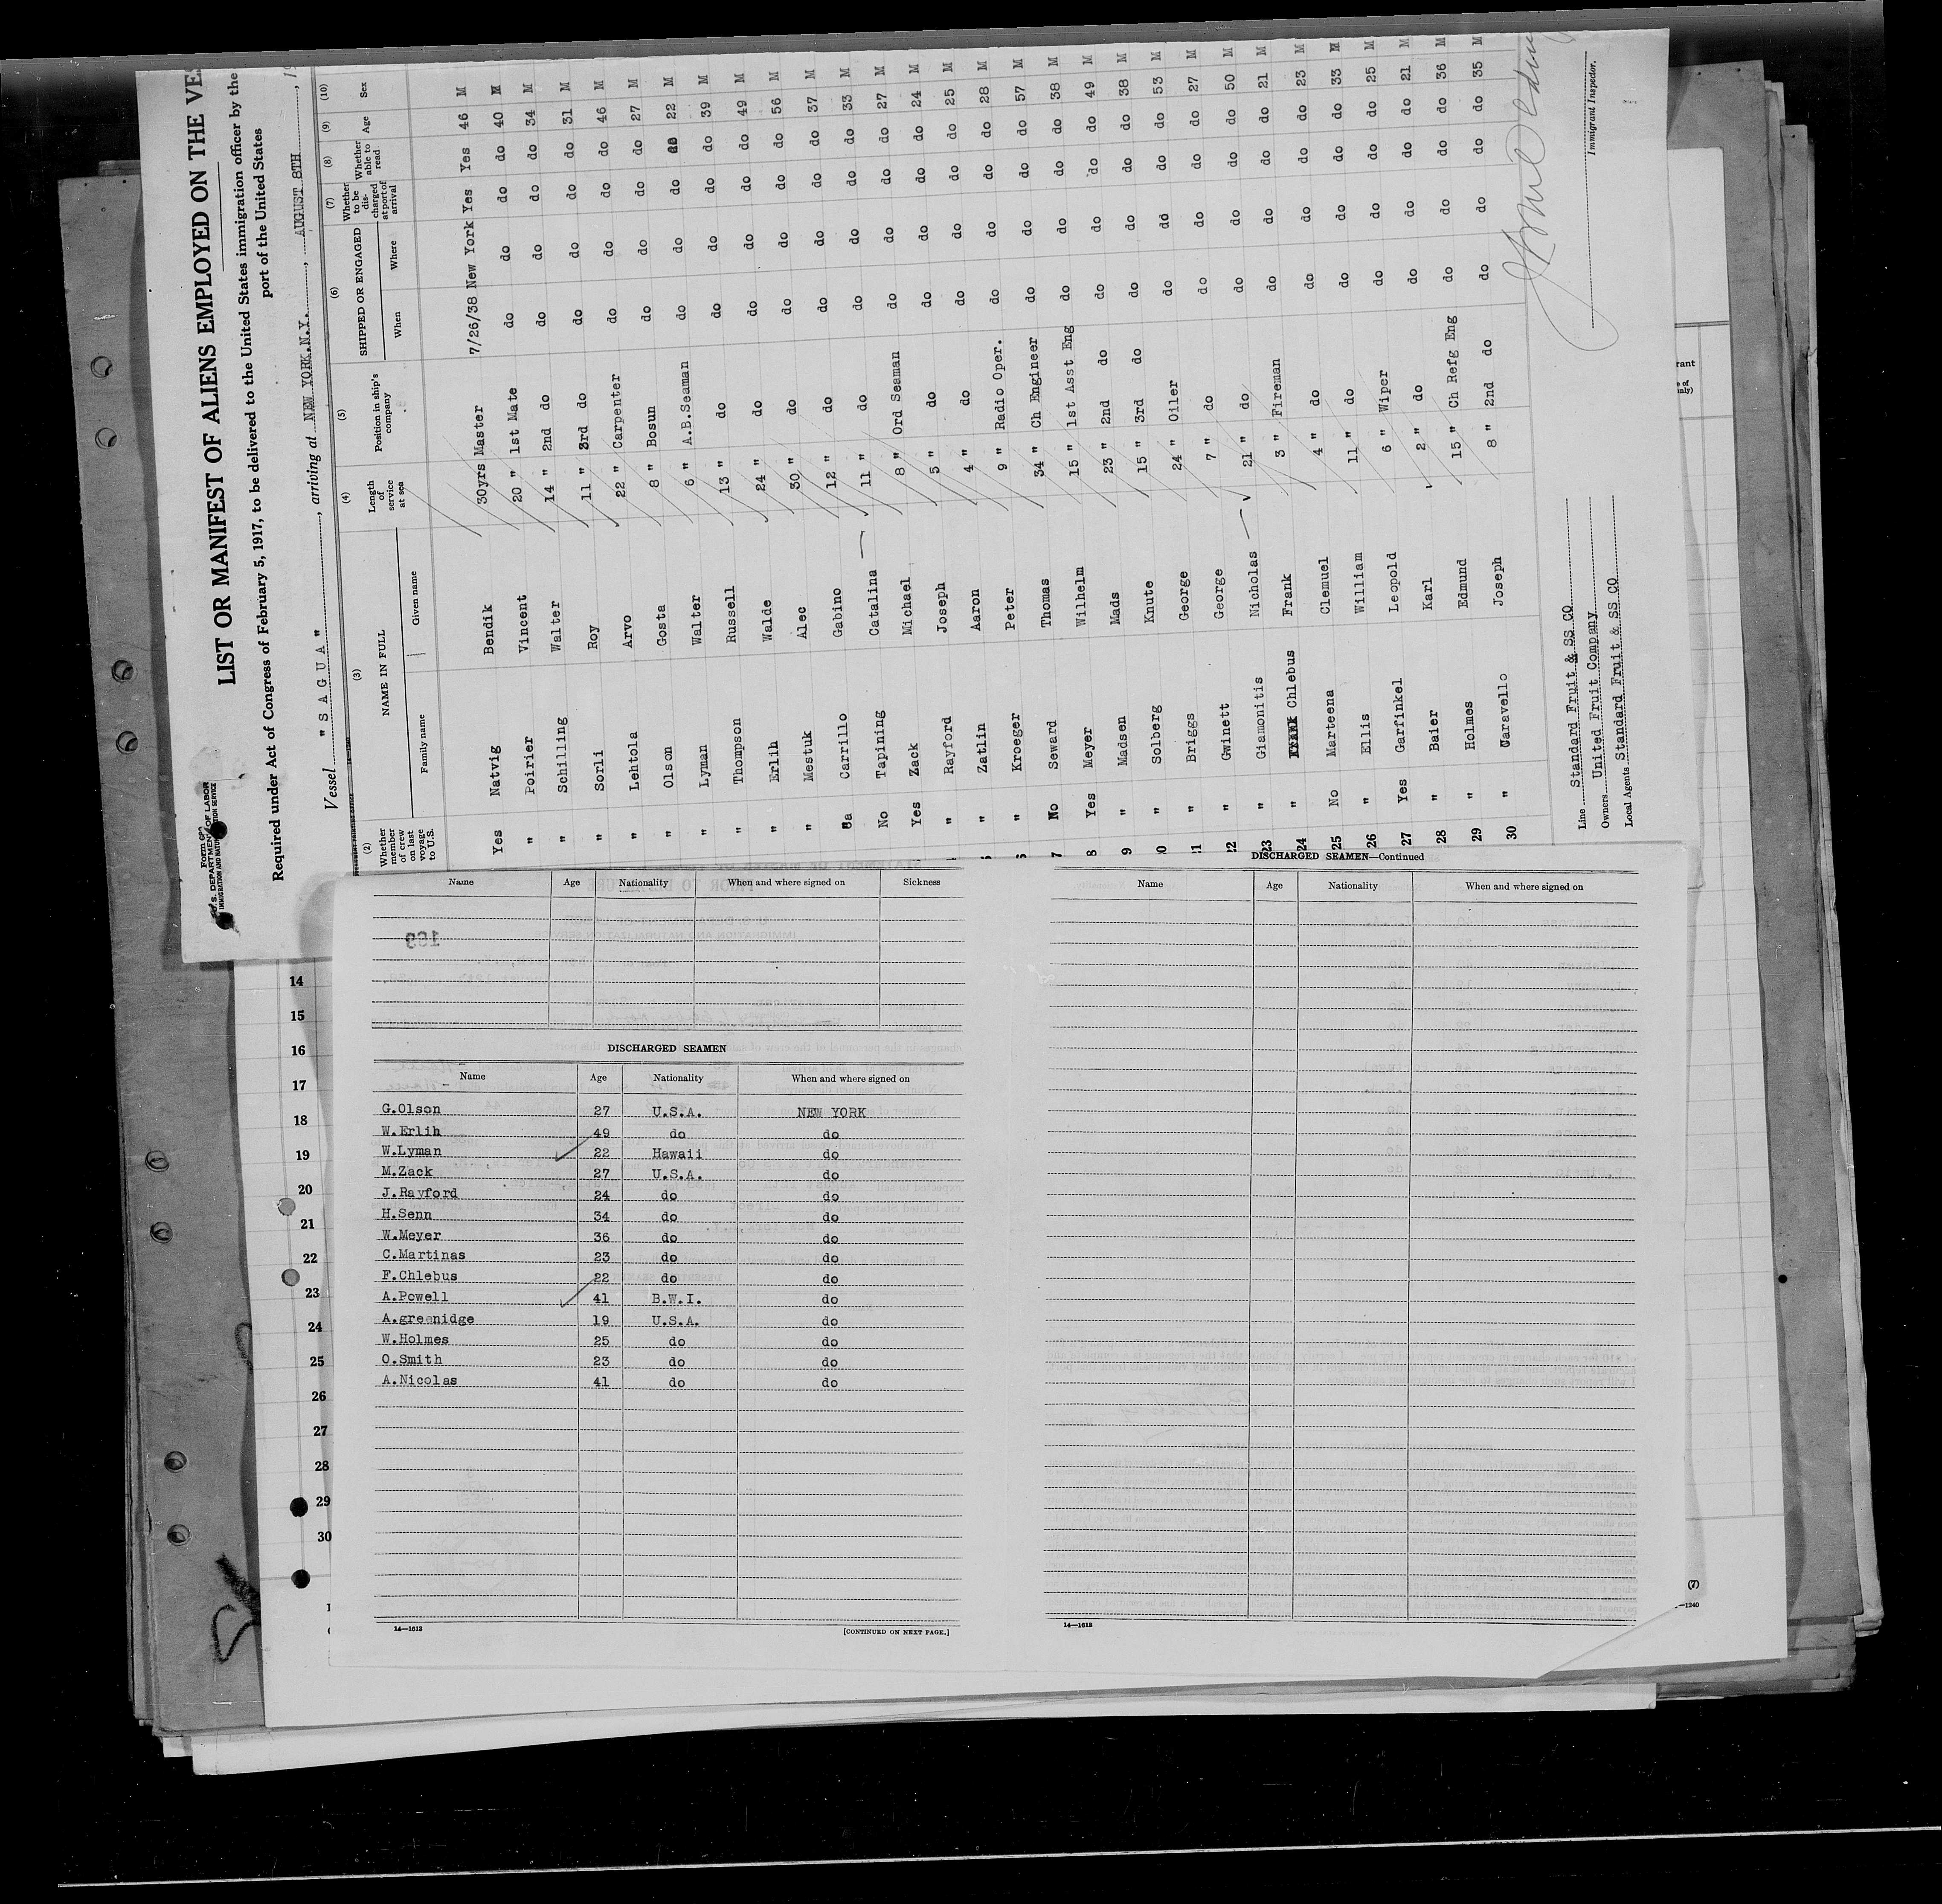 Form 689
U. S. DEPARTMENT OF LABOR
IMMIGRATION AND NATURALIZATION SERVICE
LIST OR MANIFEST OF ALIENS EMPLOYED ON THE VES
Required under Act of Congress of February 5, 1917, to be delivered to the United States immigration officer by the
port of the United States
Vessel "SAGUA", arriving at NEW YORK.N.Y., AUGUST 8TH, 19
(2) (3) (4) (5) (6) (7) (8) (9) (10)
Whether member of crew on last voyage to U.S. NAME IN FULL Family name Given name Length of service at sea Position in ship's company SHIPPED OR ENGAGED When Where Whether to be discharged at port of arrival Whether able to read Age Sex
Yes Natvig Bendik 30yrs Master 7/26/38 New York Yes Yes 46 M
" Poirier Vincent 20 " 1st Mate do do do do 40 M
" Schilling Walter 14 " 2nd do do do do do 34 M
" Sorli Roy 11 " 3rd do do do do do 31 M
" Lehtola Arvo 22 " Carpenter do do do do 46 M
" Olson Gosta 8 " Bosun do do do do 27 M
" Lyman Walter 6 " A.B.Seaman do do do do 22 M
" Thompson Russell 13 " do do do do do 39 M
" Erlih Walde 24 " do do do do do 49 M
" Mestuk Alec 30 " do do do do do 56 M
" Carrillo Gabino 12 " do do do do do 37 M
No Tapining Catalina 11 " do do do do do 33 M
Yes Zack Michael 8 " Ord Seaman do do do do 27 M
" Rayford Joseph 5 " do do do do do 24 M
" Zatlin Aaron 4 " do do do do do 25 M
" Kroeger Peter 9 " Radio Oper. do do do do 28 M
No Seward Thomas 34 " Ch Engineer do do do do 57 M
Yes Meyer Wilhelm 15 " 1st Asst Eng do do do do 38 M
" Madsen Mads 23 " 2nd do do do do do 49 M
" Solberg Knute 15 " 3rd do do do do do 38 M
" Briggs George 24 " Oiler do do do do 53 M
22 " Gwinett George 7 " do do do do do 27 M
23 " Giamonitis Nicholas 21 " do do do do do 50 M
24 " Chlebus Frank 3 " Fireman do do do do 21 M
25 No Marteena Clemuel 4 " do do do do do 23 M
26 " Ellis William 11 " do do do do do 33 M
27 Yes Garfinkel Leopold 6 " Wiper do do do do 25 M
28 " Baier Karl 2 " do do do do do 21 M
29 " Holmes Edmund 15 " Ch Refg Eng do do do do 36 M
30 " Caravello Joseph 8 " 2nd do do do do do 35 M
Line Standard Fruit & SS CO
Owners United Fruit Company
Local Agents Standard Fruit & SS CO
Immigrant Inspector.
14
15
16
17
18
19
20
21
22
23
24
25
26
27
28
29
30
Name Age Nationality When and where signed on Sickness
DISCHARGED SEAMEN
Name Age Nationality When and where signed on
G.Olson 27 U.S.A. NEW YORK
W.Erlih 49 do do
W.Lyman 22 Hawaii do
M.Zack 27 U.S.A. do
J.Rayford 24 do do
H.Senn 34 do do
W.Meyer 36 do do
C.Martinas 23 do do
F.Chlebus 22 do do
A.Powell 41 B.W.I. do
A.greenidge 19 U.S.A. do
W.Holmes 25 do do
O.Smith 23 do do
A.Nicolas 41 do do
14—1613 [CONTINUED ON NEXT PAGE.]
DISCHARGED SEAMEN—Continued
Name Age Nationality When and where signed on
14—1613
—1240